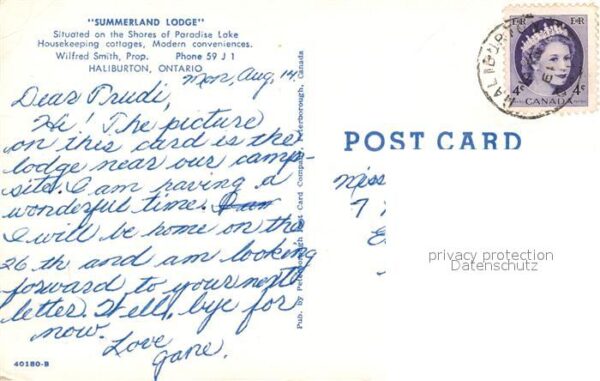 "SUMMERLAND LODGE"
Situated on the Shores of Paradise Lake
Housekeeping cottages, Modern conveniences.
Wilfred Smith, Prop. Phone 59 J 1
HALIBURTON, ONTARIO
Mon, Aug, 14.
Dear Trudi,
Hi! The picture
on this card is the
lodge near our camp-
site. I am having a
wonderful time.
I will be home on the
26 th and am looking
forward to your next
letter. Well, bye for
now.
Love
Jane.
40180-B
Pub. by Peterborough Post Card Company, Peterborough, Canada
EIIR EIIR
4¢ 4¢
CANADA
HALIBURTON
POST CARD
Miss
7
E
privacy protection
Datenschutz